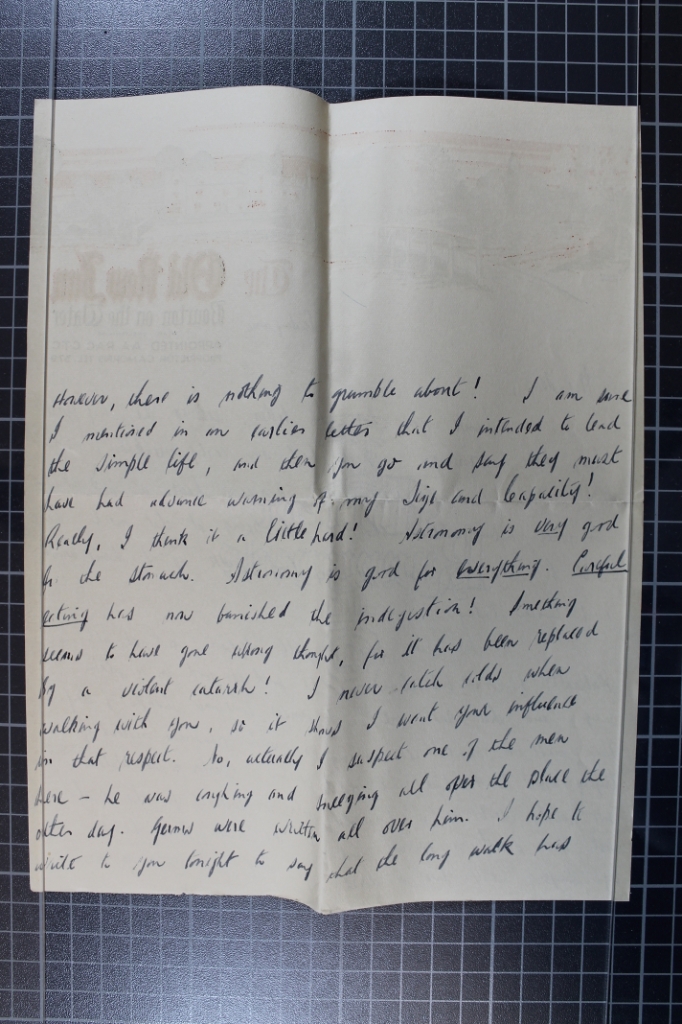 However, there is nothing to grumble about! I am sure
I mentioned in an earlier letter that I intended to lead
the simple life, and then you go and say they must
have had advance warning of my size and capacity!
Really, I think it a little hard! Astronomy is very good
for the stomach. Astronomy is good for everything. Careful
eating has now banished the indigestion! Something
seems to have gone wrong though, for it has been replaced
by a violent catarrh! I never catch colds when
walking with you, so it shows I want your influence
in that respect. No, actually I suspect one of the men
here – he was coughing and sneezing all over the place the
other day. Germs were written all over him. I hope to
write to you tonight to say what the long walk has
The Old New Inn
Bourton on the Water